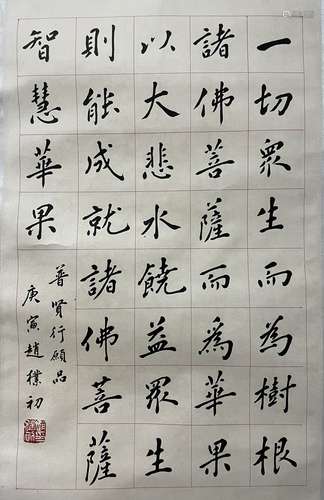 一切眾生而為樹根
諸佛菩薩而為華果
以大悲水饒益眾生
則能成就諸佛菩薩
智慧華果
普賢行願品
庚寅趙樸初